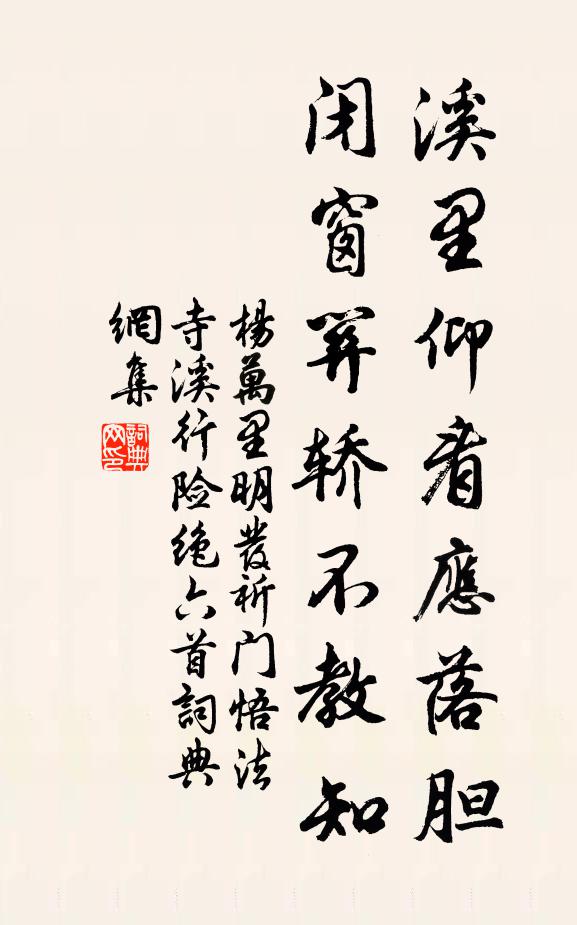 溪里仰看應落胆
闭窗轿不教知
楊萬里明發祈门悟法
寺溪行险绝六首詞典
網集
詞典
网印